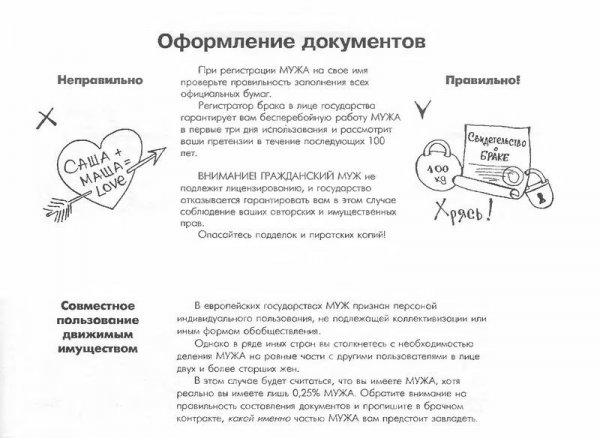 Оформление документов
Неправильно
САША +
МАША =
LOVE
При регистрации МУЖА на свое имя
проверьте правильность заполнения всех
официальных бумаг.
Регистратор брака в лице государства
гарантирует вам бесперебойную работу МУЖА
в первые три дня использования и рассмотрит
ваши претензии в течение последующих 100
лет.
ВНИМАНИЕ! ГРАЖДАНСКИЙ МУЖ не
подлежит лицензированию, и государство
отказывается гарантировать вам в этом случае
соблюдение ваших авторских и имущественных
прав.
Опасайтесь подделок и пиратских копий!
Правильно!
Свидетельство
о
БРАКЕ
100
кг
Хрясь!
Совместное
пользование
движимым
имуществом
В европейских государствах МУЖ признан персоной
индивидуального пользования, не подлежащей коллективизации или
иным формам обобществления.
Однако в ряде иных стран вы столкнетесь с необходимостью
деления МУЖА на равные части с другими пользователями в лице
двух и более старших жен.
В этом случае будет считаться, что вы имеете МУЖА, хотя
реально вы имеете лишь 0,25% МУЖА. Обратите внимание на
правильность составления документов и пропишите в брачном
контракте, какой именно частью МУЖА вам предстоит завладеть.